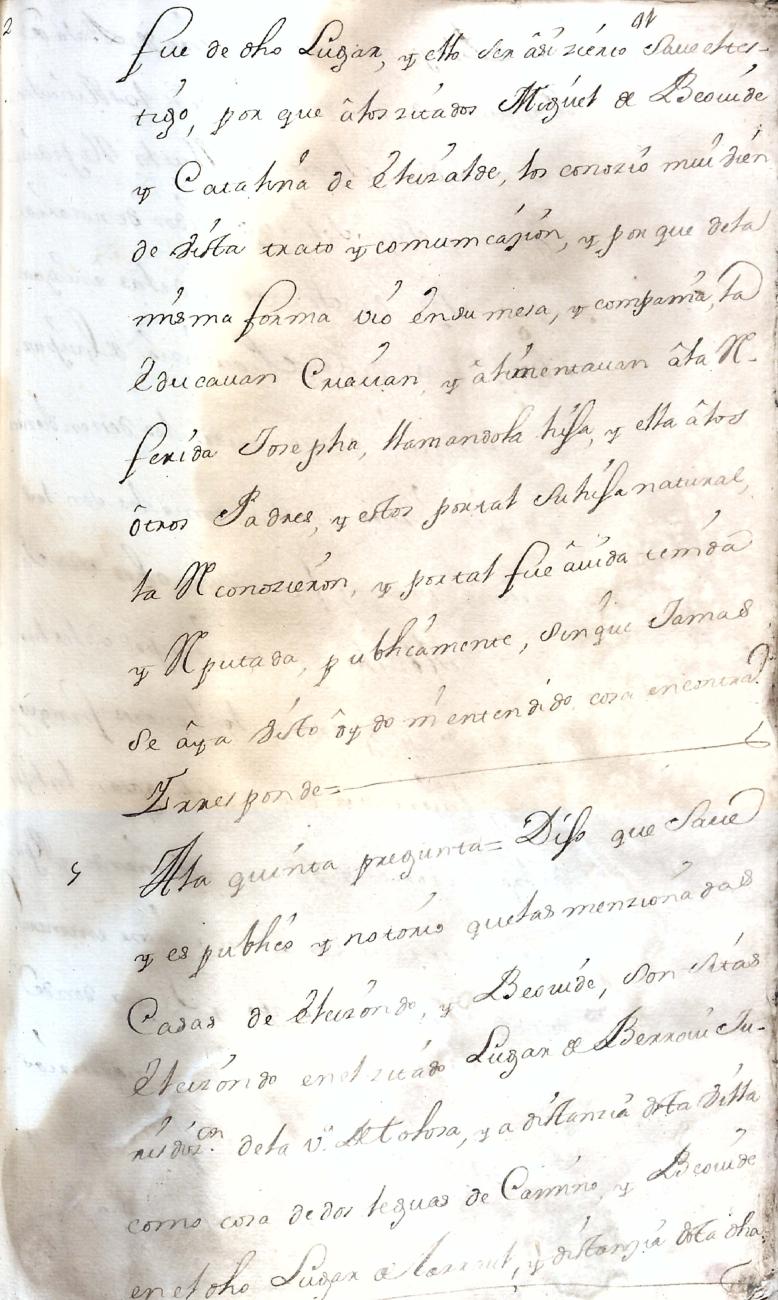 fue de dho Lugar, y ello ser âsi zierto Save el tes-
tigo, por que âlos zitados Miguel de Beovide
y Catalina de Êleizalde, los conozio mui bien
de vista trato y comunicazion, y por que dela
misma forma vio en su mesa, y compania, la
Êducavan Criavan, y âlimentavan âla Re-
ferida Josepha, llamandola hija, y ella âlos
ôtros Padres, y estos por tal Su hija natural,
la Reconozieron, y por tal fue âvida tenida
y Reputada, publicamente, sin que Jamas
Se âya visto ôydo ni entendido cosa en contra
Y rresponde=
5 A la quinta pregunta= Dijo que Save
y es publico y notorio que las menzionadas
Casas de Êleizondo, y Beovide, son sitas
Êleizondo en el zitado Lugar de Berrovi Ju-
risdizon. dela va. de Tolosa, y a distanzia dela villa
como cosa de dos leguas de Camino, y Beovide
en el dho Lugar de Larraul, y distanzia dela dha